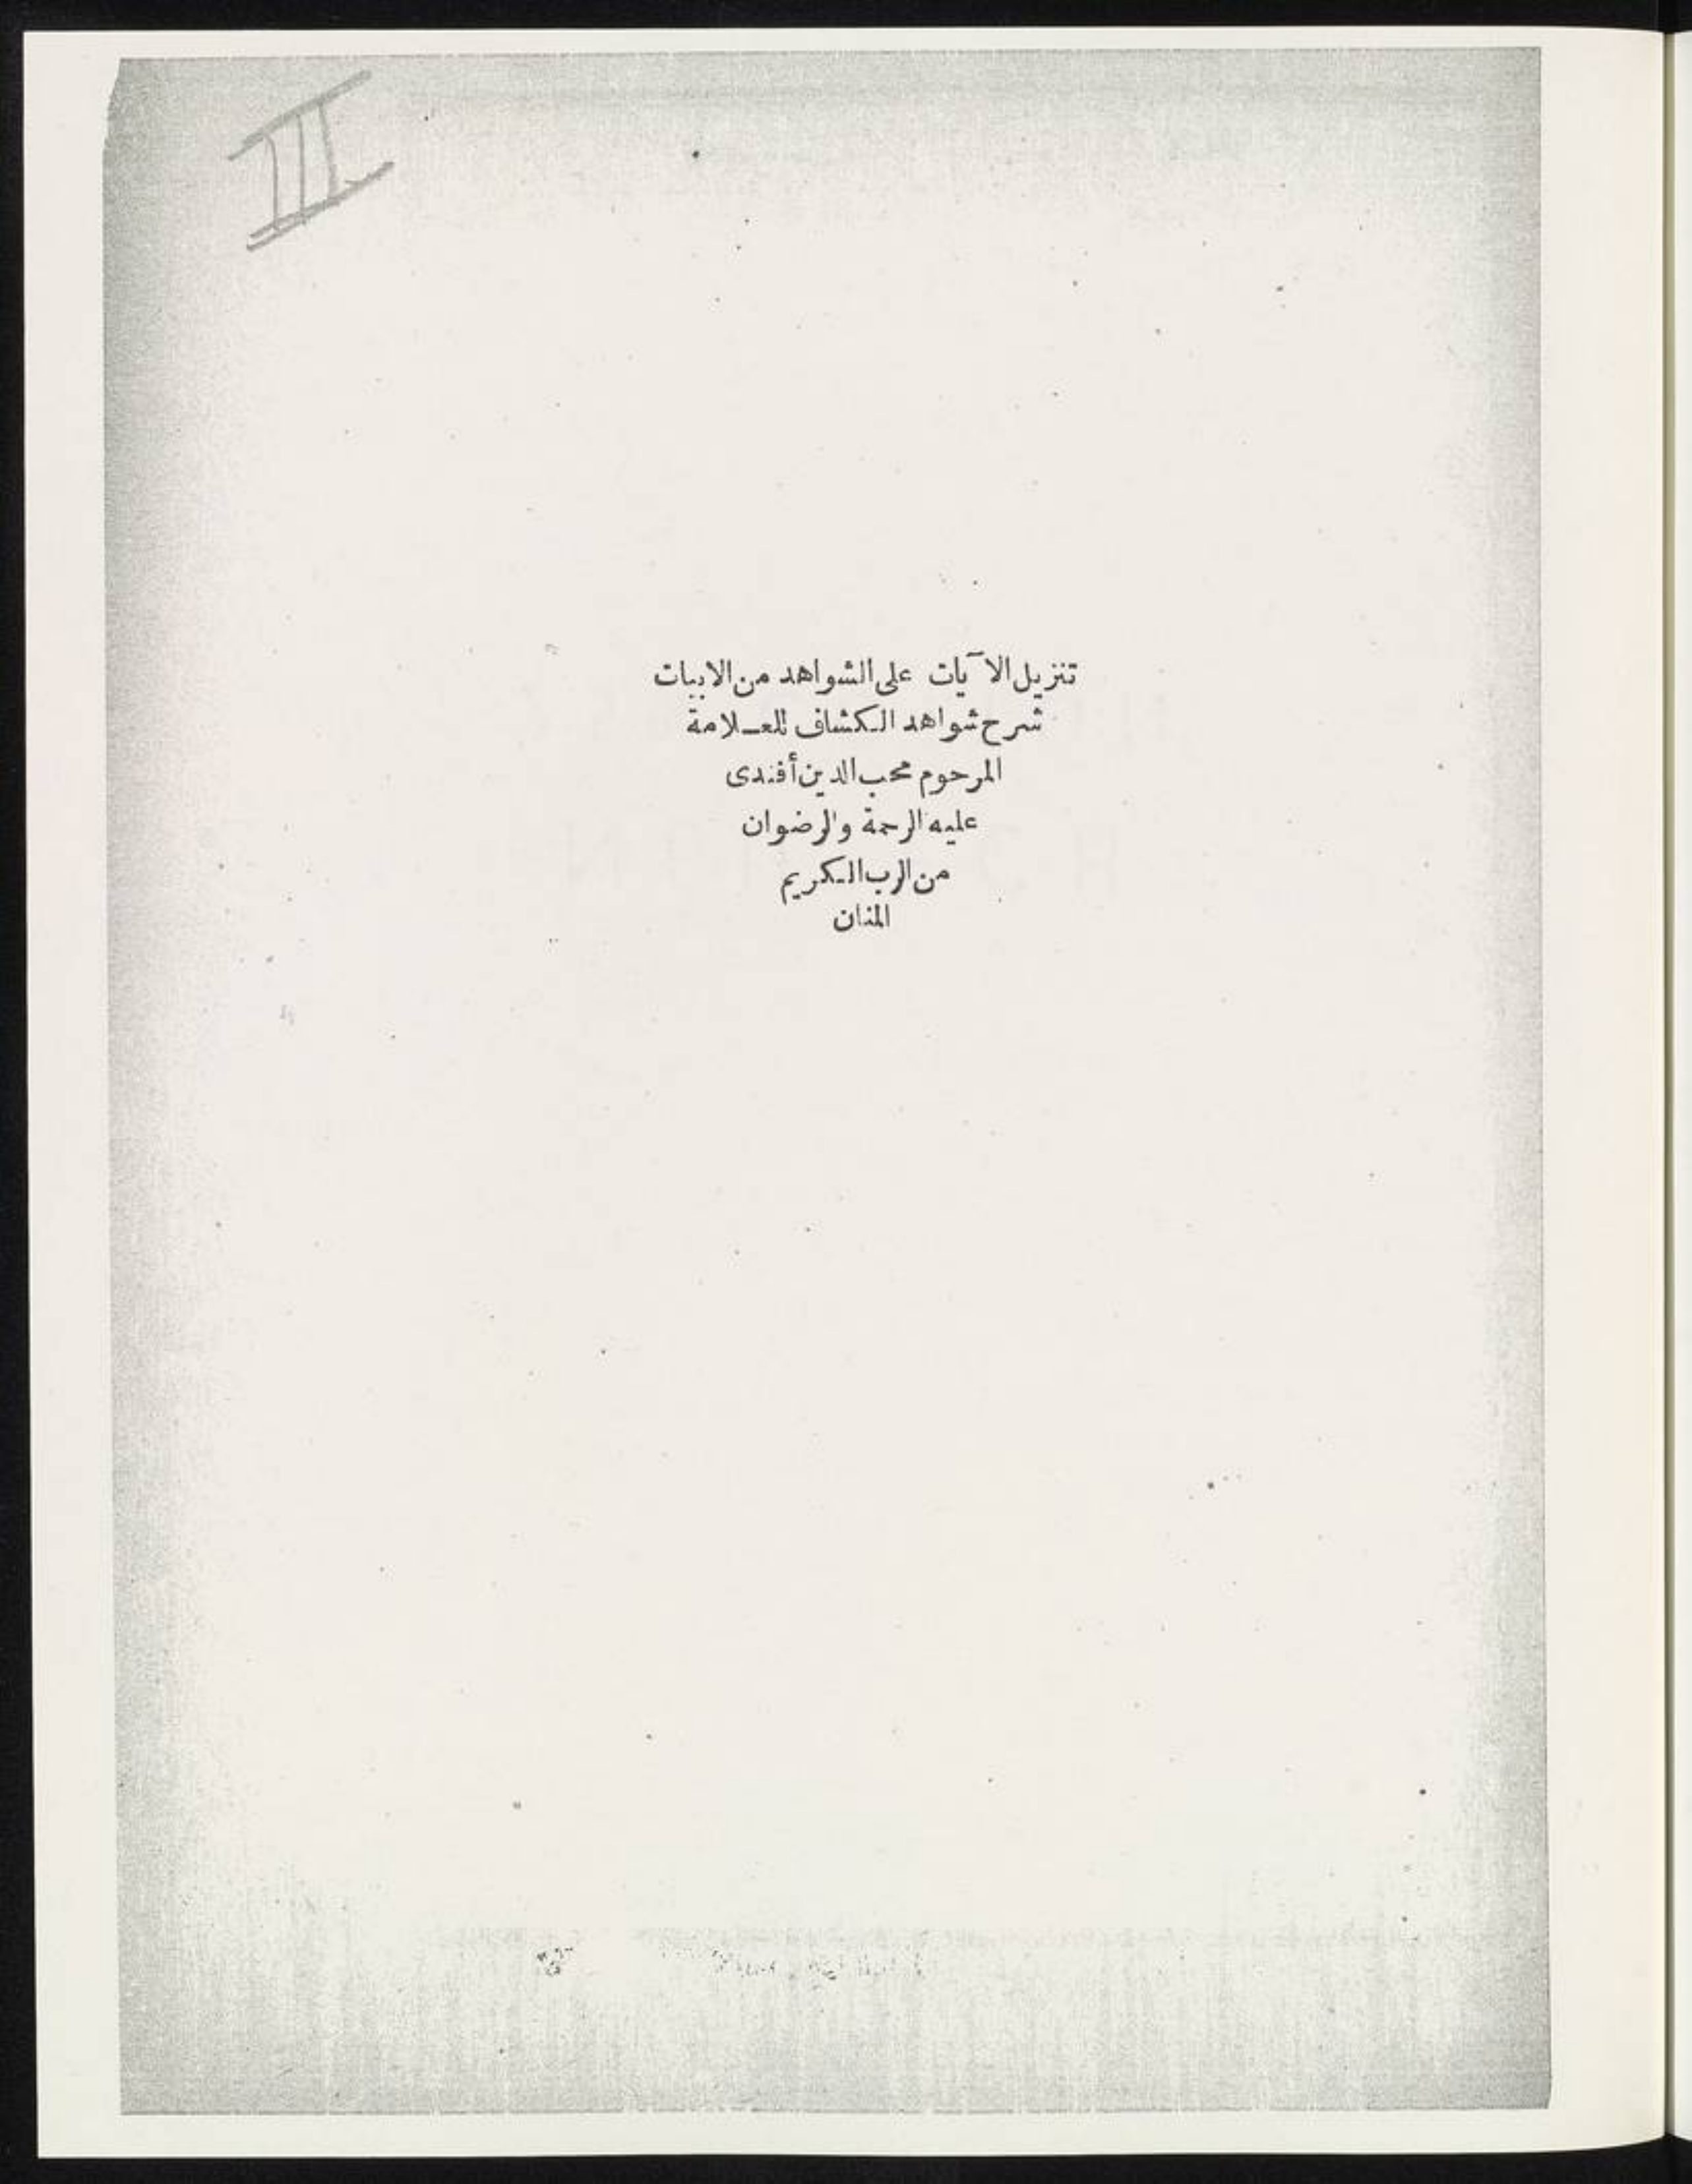 III
تنزيل الآيات على الشواهد من الابيات
شرح شواهد الكشاف للعـلامة
المرحوم محب الدين أفندى
عليه الرحمة والرضوان
من الرب الكريم
المنان